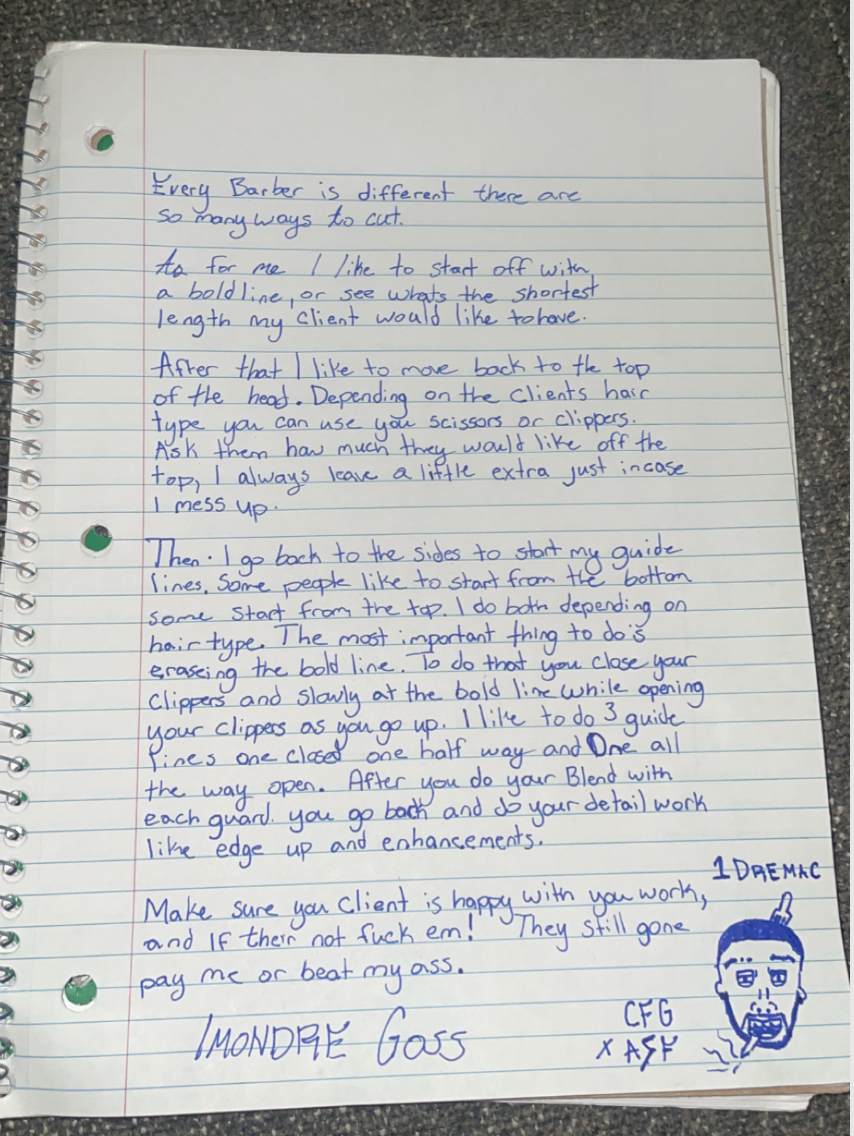 Every Barber is different there are
so many ways to cut.
As for me I like to start off with
a bold line, or see whats the shortest
length my client would like to have.
After that I like to move back to the top
of the head. Depending on the clients hair
type you can use you scissors or clippers.
Ask them how much they would like off the
top, I always leave a little extra just incase
I mess up.
Then. I go back to the sides to start my guide
lines. Some people like to start from the bottom
some start from the top. I do both depending on
hair type. The most important thing to do is
eraseing the bold line. To do that you close your
clippers and slowly at the bold line while opening
your clippers as you go up. I like to do 3 guide
lines one closed one half way and One all
the way open. After you do your Blend with
each guard. you go back and do your detail work
like edge up and enhancements.
1DREMAC
Make sure you client is happy with you work,
and If their not fuck em! They still gone
pay me or beat my ass.
IMONDRE Goss
CFG
X ASF